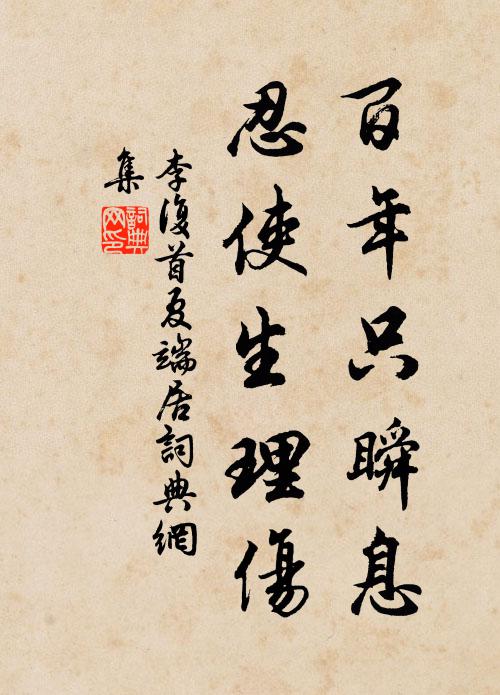 百年只瞬息
忍使生理傷
李復首夏端居詞典網
集
詞典
网印